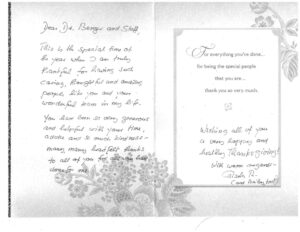 Dear Dr. Berger and Staff,
This is the special time of
the year when I am truly
thankful for having such
caring, thoughtful and amazing
people like you and your
wonderful team in my life.
You have been so very generous
and helpful with your time,
advice and so much kindness -
many many heartfelt thanks
to all of you for
done for me
For everything you've done...
for being the special people
that you are...
thank you so very much.
Wishing all of you
a very happy and
healthy Thanksgiving!
With warm